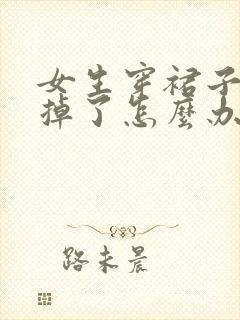 女生穿裙子
掉了怎麼办
路未晨